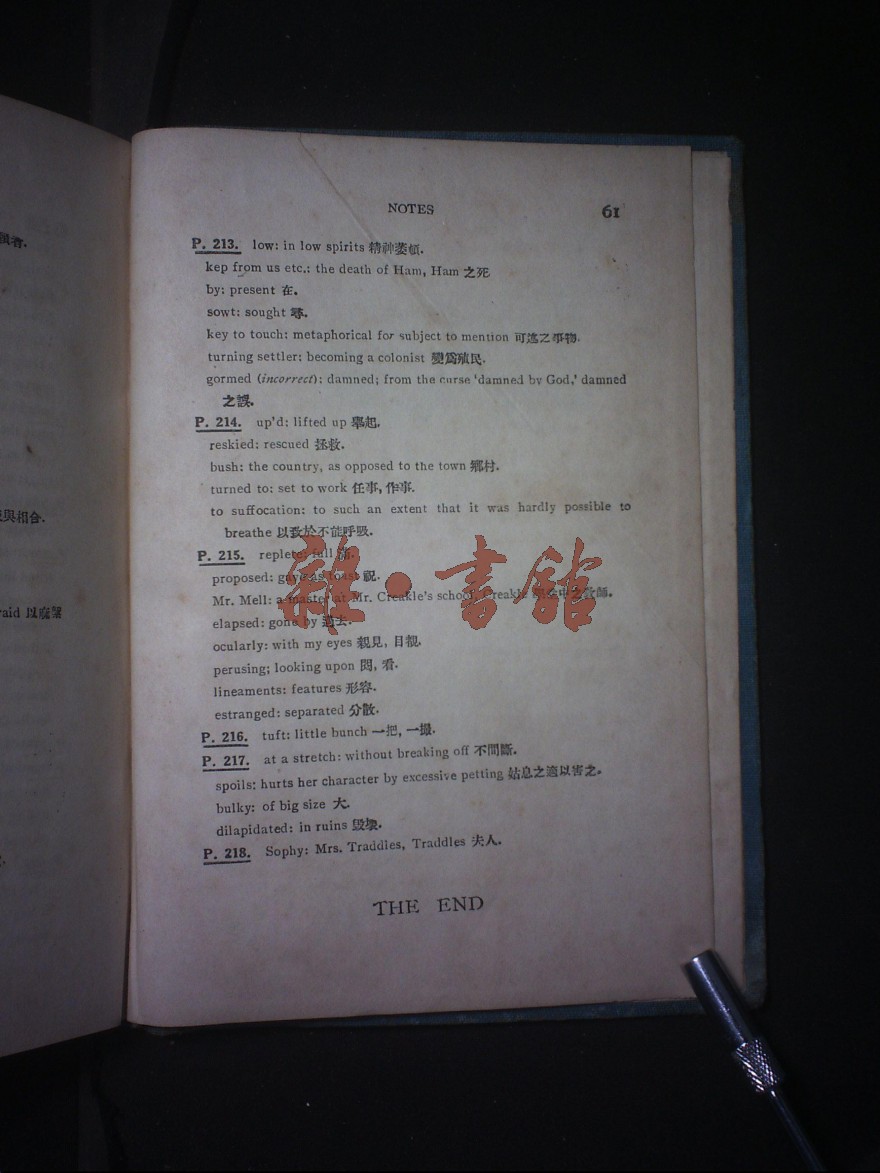 NOTES 61
P. 213. low: in low spirits 精神萎頓.
kep from us etc.: the death of Ham, Ham 之死
by: present 在.
sowt: sought 尋.
key to touch: metaphorical for subject to mention 可述之事物.
turning settler: becoming a colonist 變爲殖民.
gormed (incorrect): damned; from the curse 'damned by God,' damned
之誤.
P. 214. up'd: lifted up 舉起.
reskied: rescued 拯救.
bush: the country, as opposed to the town 鄉村.
turned to: set to work 任事, 作事.
to suffocation: to such an extent that it was hardly possible to
breathe 以致於不能呼吸.
P. 215. replete: full 滿.
proposed: gave as toast 祝.
Mr. Mell: a master at Mr. Creakle's school, Creakle 中之敎師.
elapsed: gone by 過去.
ocularly: with my eyes 親見, 目覩.
perusing; looking upon 閱, 看.
lineaments: features 形容.
estranged: separated 分散.
P. 216. tuft: little bunch 一把, 一撮.
P. 217. at a stretch: without breaking off 不間斷.
spoils: hurts her character by excessive petting 姑息之適以害之.
bulky: of big size 大.
dilapidated: in ruins 毀壞.
P. 218. Sophy: Mrs. Traddles, Traddles 夫人.
THE END
雜·書館
與相合.
raid 以